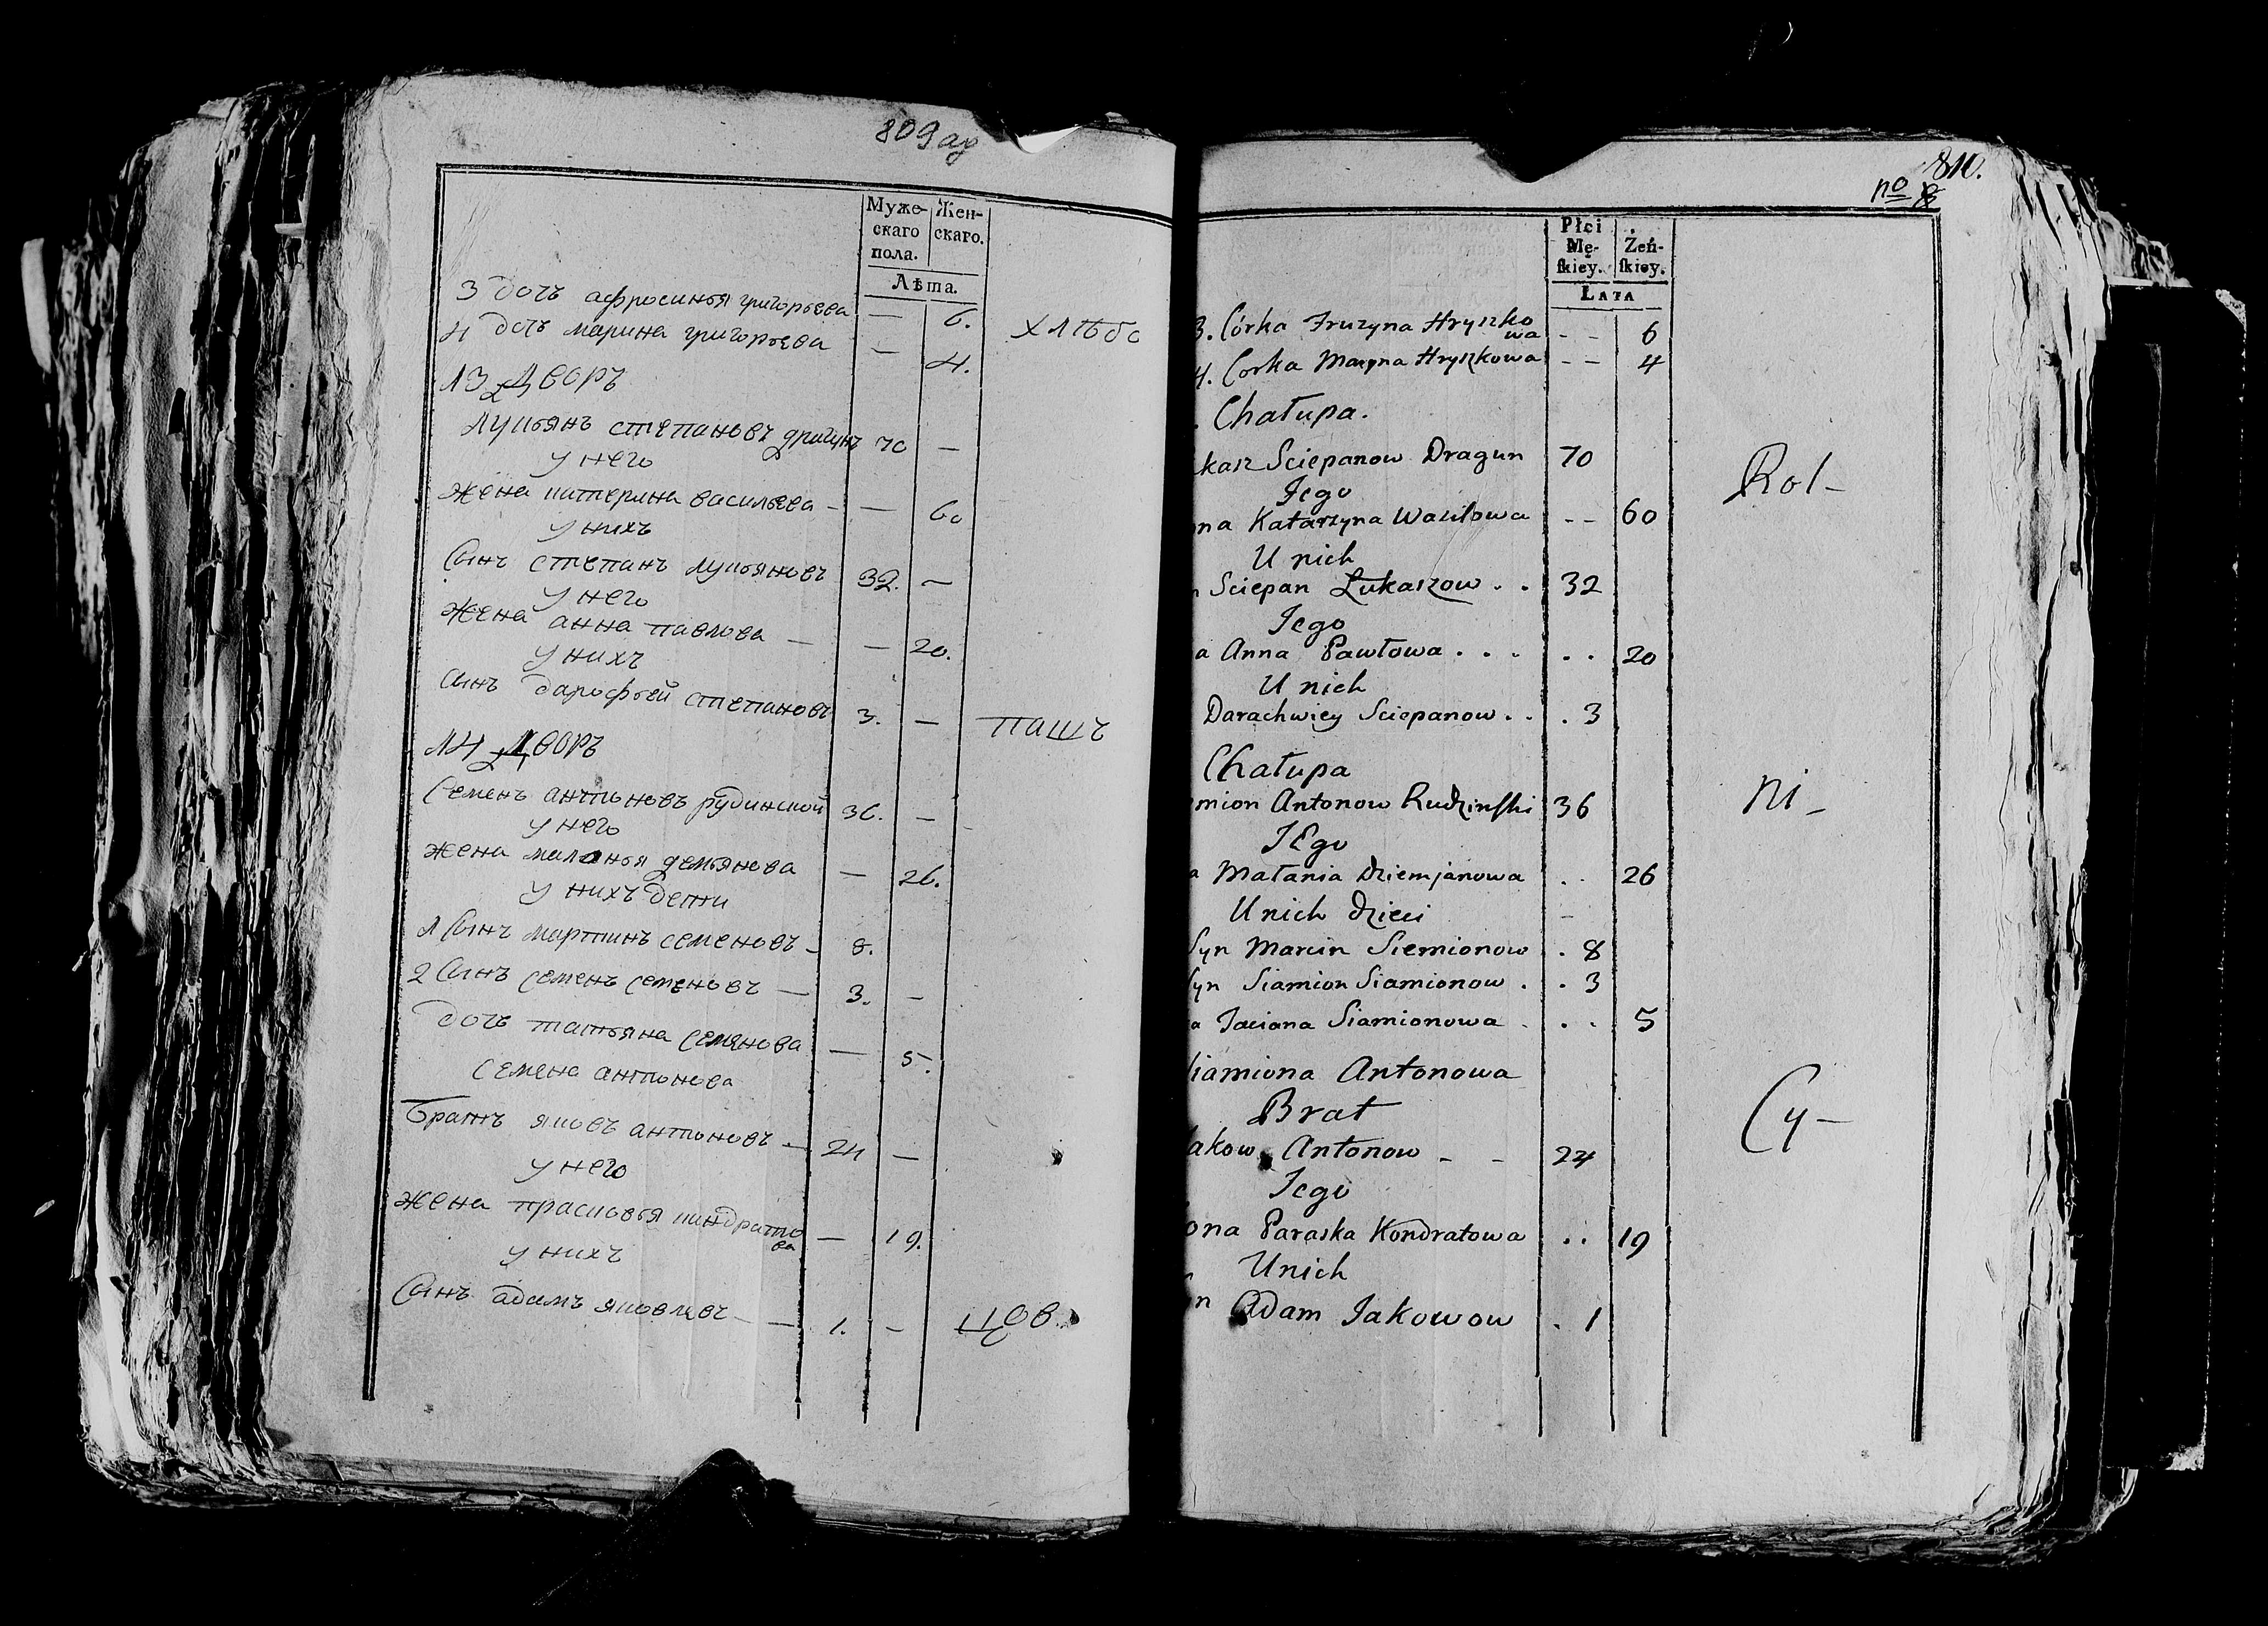 809 ау
Муже-
скаго
пола.
Жен-
скаго.
Лѣта.
3 дочь афросинья григорьева — 6.
4 дочь марина григорьева — 4.
хлѣбо
13 Дворъ
лукьянъ степановъ драгунъ 70 —
у него
жена катерина васильева — — 60
у нихъ
Сынъ степанъ лукьяновъ 32. —
у него
жена анна павлова — — 20.
у нихъ
сынъ дарофьей степановъ 3. —
пашъ
14 Дворъ
Семенъ антоновъ рудинской 36. —
у него
жена маланья демьянова — 26.
у нихъ дети
1 Сынъ мартинъ семеновъ — 8.
2 Сынъ семенъ семеновъ — 3. —
дочь татьяна семянова — 5.
Семена антонова
братъ яковъ антоновъ — 24 —
у него
жена прасковья кандрато
ва — 19.
у нихъ
Сынъ адамъ яковлевъ — — 1. —
цов
810.
no
Płci
Mę-
ſkiey.
Żeń-
ſkiey.
Lata
3. Córka Fruzyna Hryszko
wa - - 6
4. Corka Maryna Hryszkowa - - 4
. Chałupa.
kasz Sciepanow Dragun 70
Jego
na Katarzyna Wasilowa - - 60
U nich
n Sciepan Łukaszow . . 32
Jego
a Anna Pawłowa . . . . . 20
U nich
Darachwiey Sciepanow . . . 3
Chałupa
mion Antonow Rudzinſki 36
JEgo
a Małania Dziemjanowa . . 26
U nich dzieci
Syn Marcin Siemionow . 8
Syn Siamion Siamionow . . 3
a Taciana Siamionowa . . . 5
Siamiona Antonowa
Brat
akow Antonow - - 24
Jego
ona Paraska Kondratowa . . 19
U nich
n Adam Jakowow . 1
Rol-
ni-
Cy-